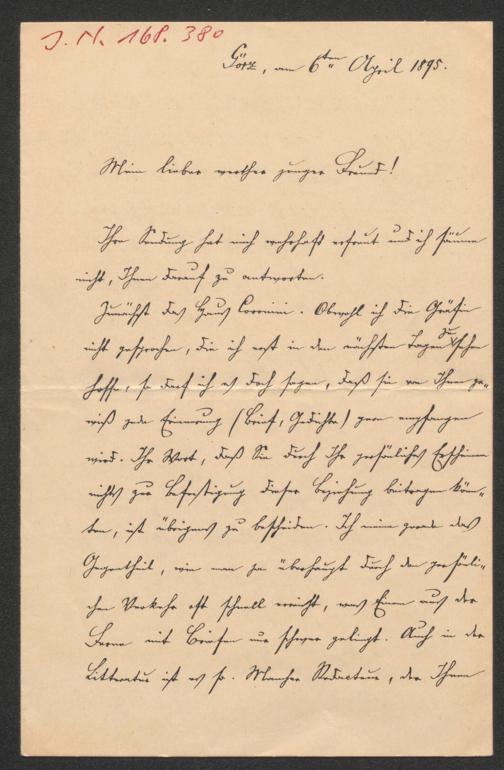 J. N. 168.380
Görz, am 6ten April 1895.
Mein lieber werther junger Freund!
Ihre Sendung hat mich wahrhaft erfreut und ich säume
nicht, Ihnen darauf zu antworten.
Zunächst das Haus Coronini. Obwohl ich die Gräfin
nicht gesprochen, die ich erst in den nächsten Tagen zu sehen
hoffe, so darf ich es doch sagen, daß sie von Ihnen ge-
wiß jede Erinnerung (Brief, Gedichte) gern empfangen
wird. Ihr Wort, daß Sie durch Ihr persönliches Erscheinen
nichts zur Befestigung dieser Beziehung beitragen könn-
ten, ist übrigens zu bescheiden. Ich meine gerade das
Gegentheil, wie man ja überhaupt durch den persönli-
chen Verkehr oft schnell erreicht, was Einem aus der
Ferne mit Briefen nur schwer gelingt. Auch in der
Litteratur ist es so. Mancher Redacteur, der Ihnen